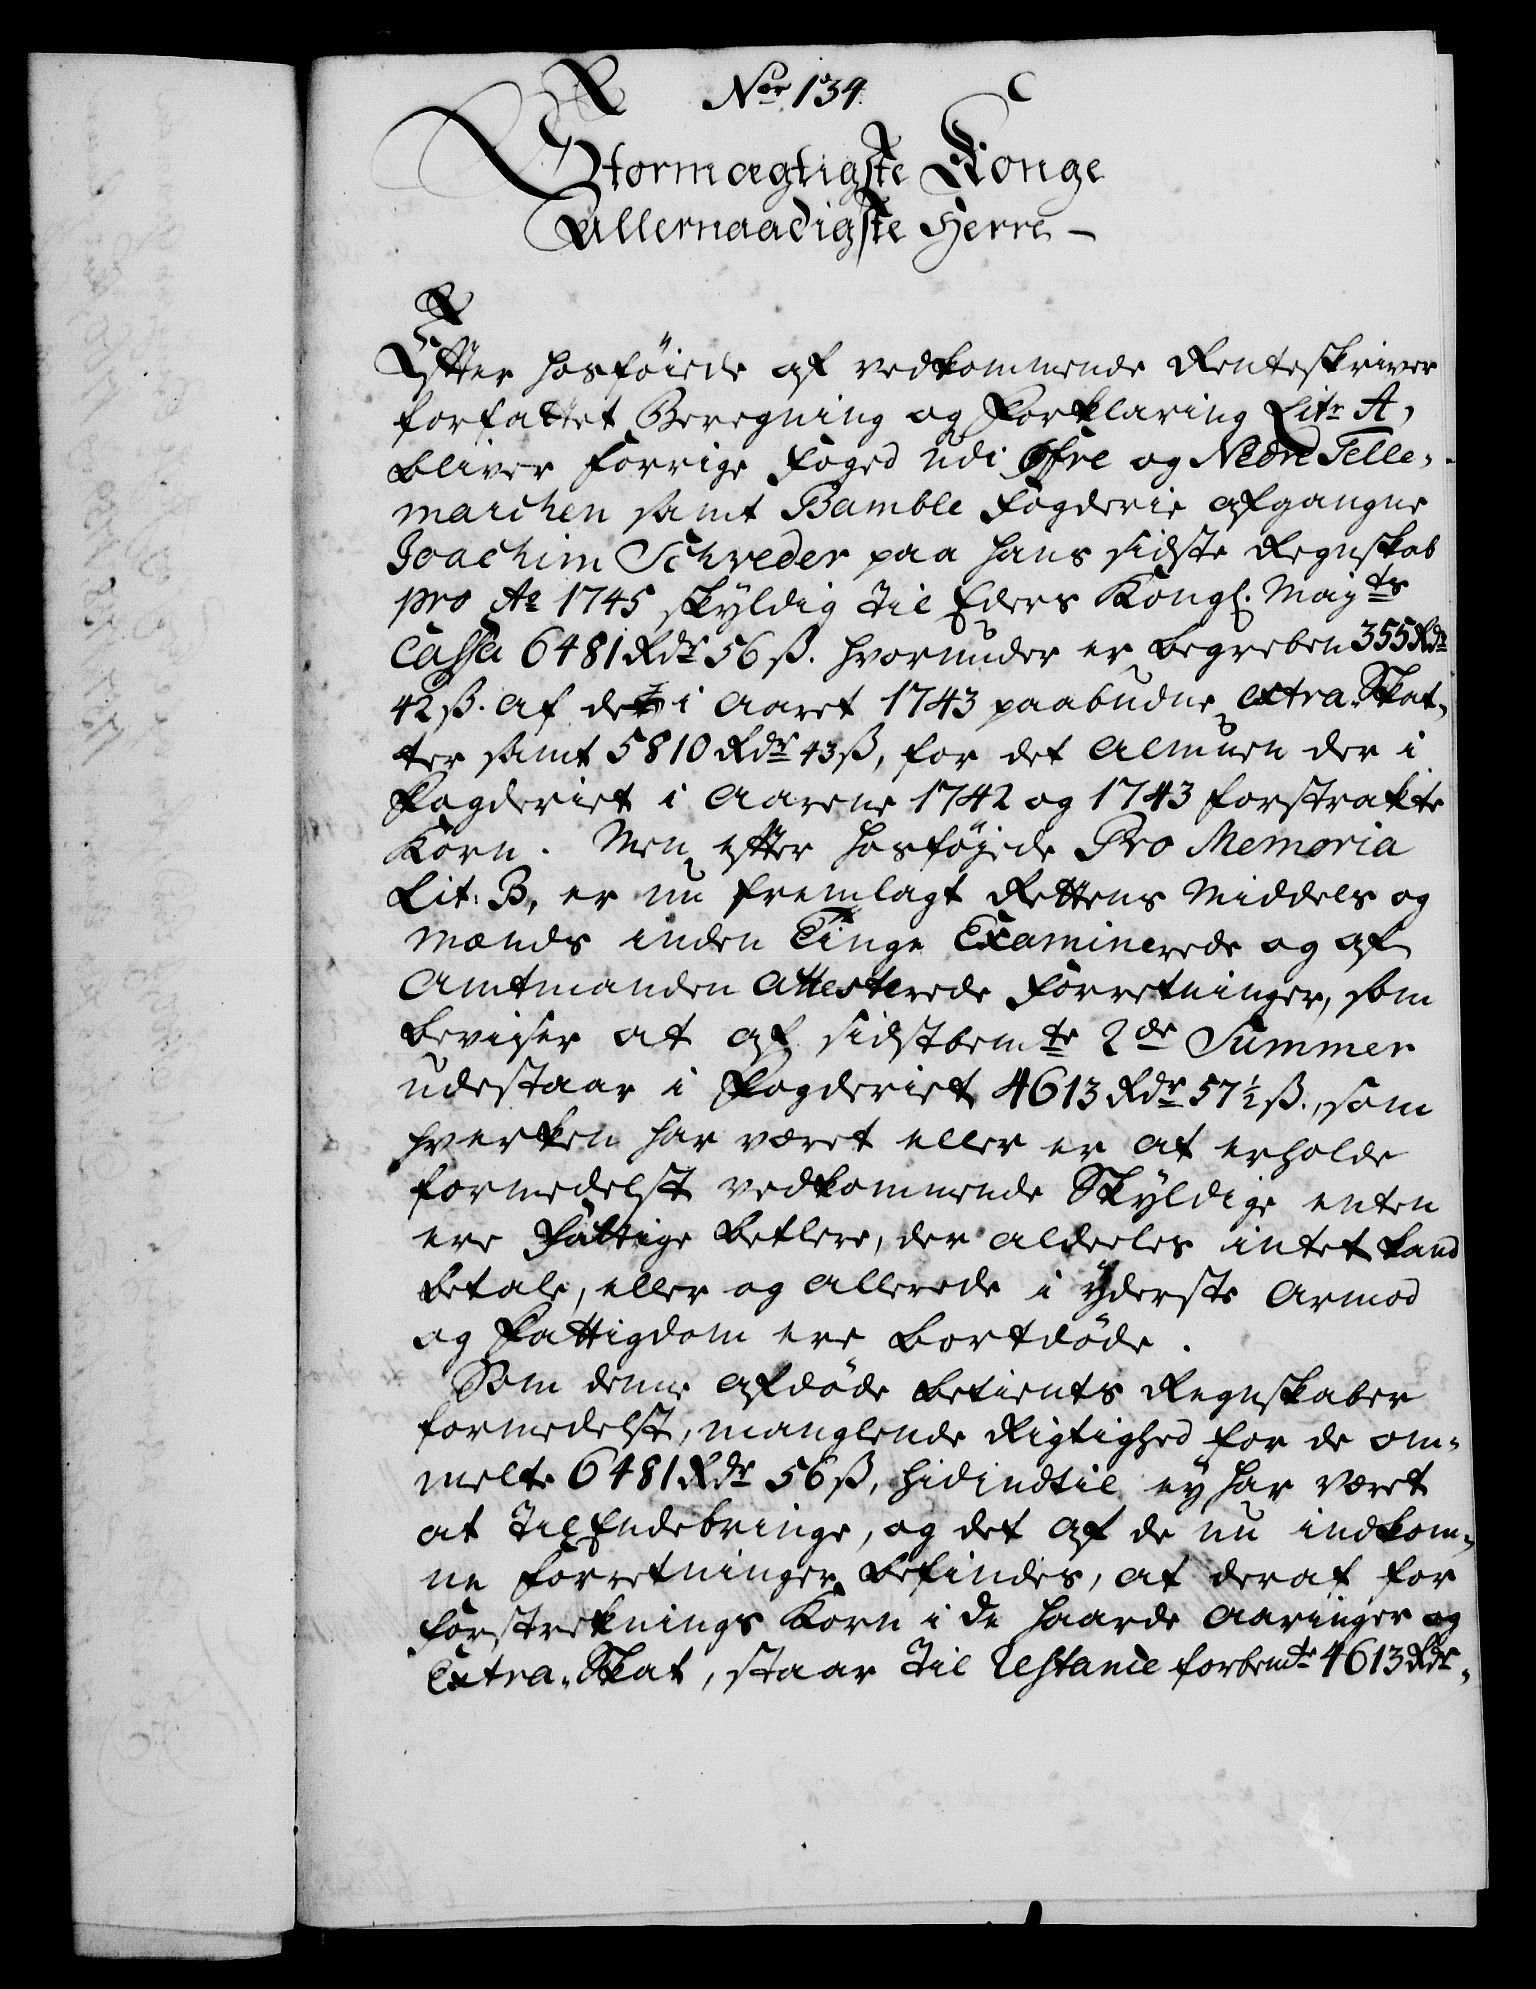 Nor 134.
Stormægtigste Konge
Allernaadigste Herre –
Efter hosføiede af vedkommende Renteskriver
forfattet Beregning og Forklaring Litr A,
bliver forrige Foged udi Øfre og Nedre Telle,
marchen samt Bamble Fogderie afgangne
Joachim Schreder paa hans sidste Regnskab
pro Ao 1745 skÿldig til Eders Kongl. Mayts
Cassa 6481 Rdr 56 ß. hvorunder er begreben 355 Rdr
42 ß. af de i Aaret 1743 paabudne extra Skat,
ter samt 5810 Rdr 43 ß, for det Almuen der i
Fogderiet i Aarene 1742 og 1743 forstrakte
Korn. Men efter hosføyede Pro Memoria
Lit: B, er nu fremlagt Rettens Middels og
Mænds inden Tinge Examinerede og af
Amtmanden Attesterede Forretninger, som
beviser at af sidstbemte 2de Summer
udestaar i Fogderiet 4613 Rdr 57½ ß., som
hverken har været eller er at erholde
formedelst vedkommende Skÿldige enten
ere fattige Betlere, der aldeeles intet kand
betale, eller og allerede i ÿderste Armod
og Fattigdom ere bortdöde.
Som denne afdöde Betients Regnskaber
formedelst, manglende Rigtighed for de om-
melte 6481 Rdr 56 ß, hidindtil eÿ har været
at til Endebringe, og det af de nu indkom,
ne Forretninger befindes, at deraf for
Forstreknings Korn i de haarde Aaringer og
Extra Skat, staar til Restance forbemte 4613 Rdr,